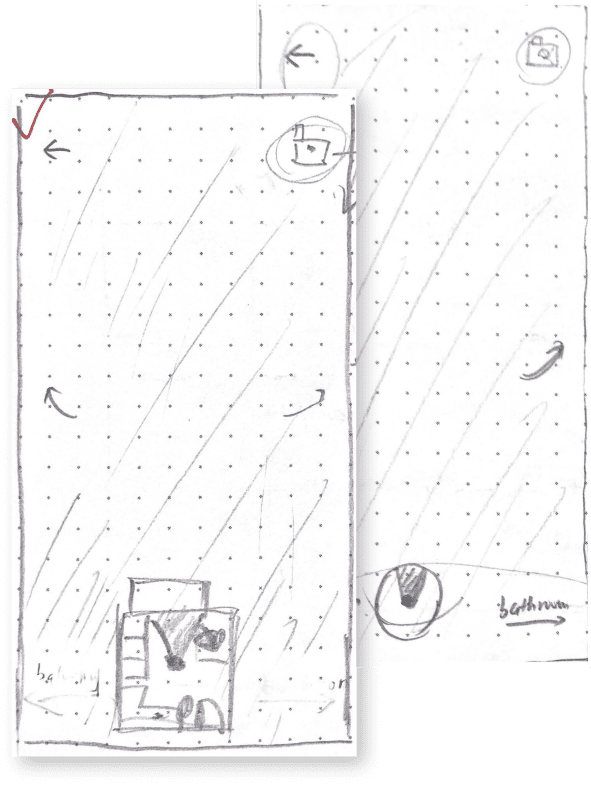 balcony
bathroom